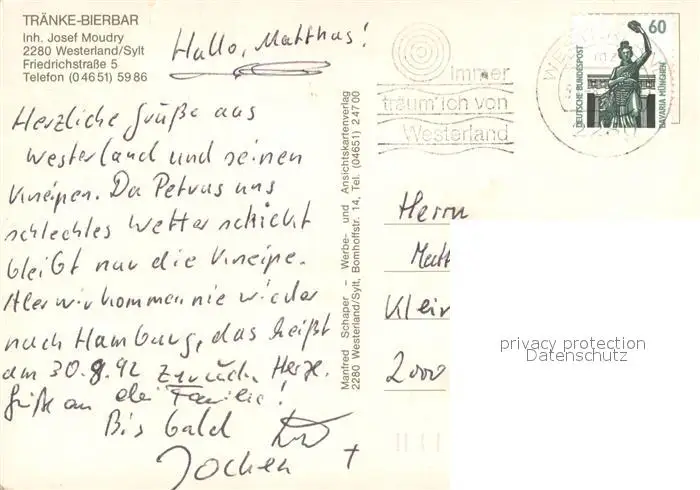 TRÄNKE-BIERBAR
Inh. Josef Moudry
2280 Westerland/Sylt
Friedrichstraße 5
Telefon (0 46 51) 59 86
Hallo, Matthus!
Herzliche Grüße aus
Westerland und seinen
Kneipen. Da Petrus uns
schlechtes Wetter schickt
bleibt nur die Kneipe.
Aber wir kommen nie wieder
nach Hamburg, das heißt
am 30.8.92 zurück. Herzl.
Grüße an die Familie!
Bis bald
Jochen
Manfred Schaper – Werbe- und Ansichtskartenverlag
2280 Westerland/Sylt, Bomhoffstr. 14, Tel. (04651) 2 47 00
immer
träum' ich von
Westerland
DEUTSCHE BUNDESPOST
60
BAVARIA MÜNCHEN
2280
Herrn
Matt
Klein
2000
privacy protection
Datenschutz